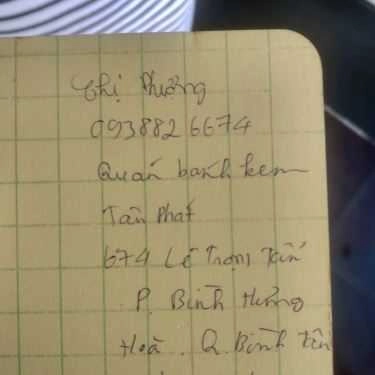 Chị Phượng
0938826674
Quán bánh kem
Tân Phát
674 Lê Trọng Tấn
P. Bình Hưng
Hoà. Q. Bình Tân